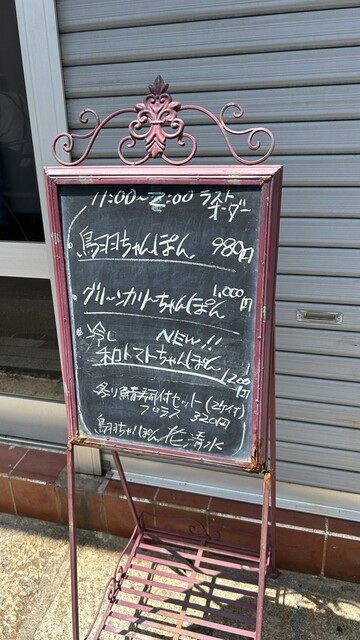 11:00~2:00 ラストオーダー
鳥羽ちゃんぽん 980円
グリーンカリーちゃんぽん 1,000円
冷し NEW!!
和トマトちゃんぽん 1200円
炙り鯖寿司付セット(2ケ付)
プラス 320円
鳥羽ちゃんぽん 花清水